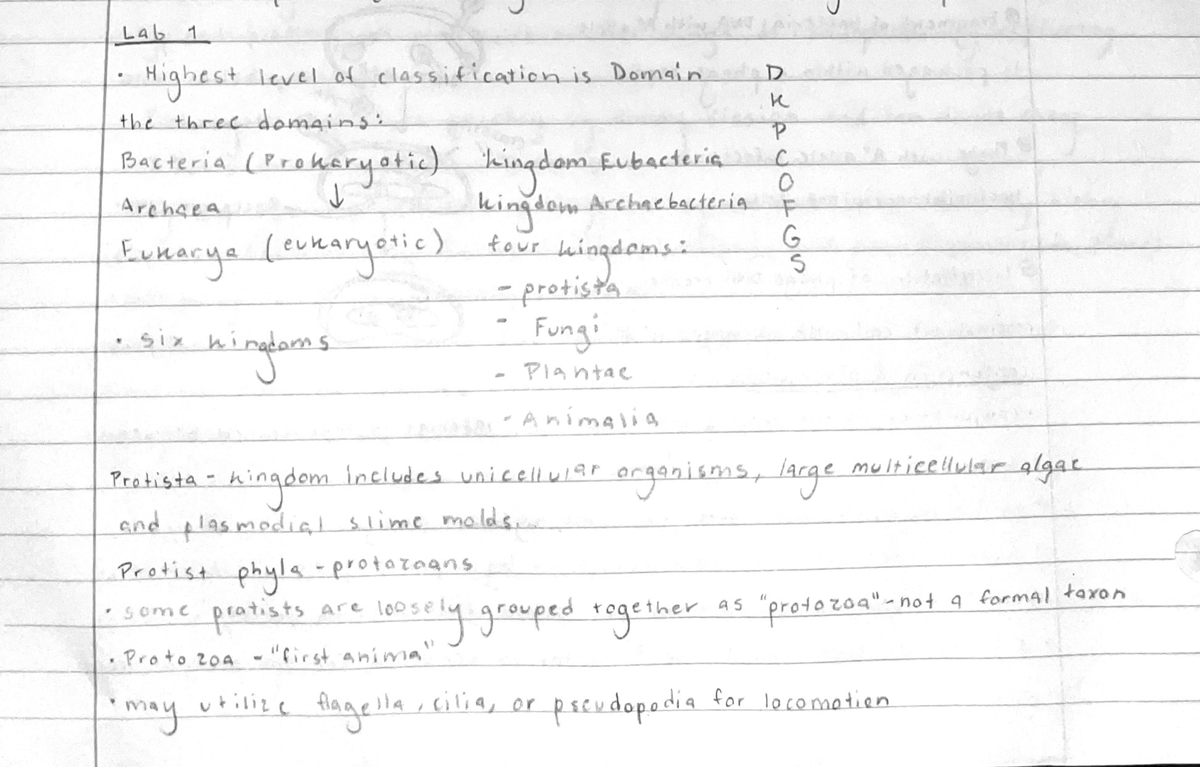 Lab 1
• Highest level of classification is Domain D
K
the three domains: P
Bacteria (Prokaryotic) kingdom Eubacteria C
O
Archaea ↓ kingdom Archaebacteria F
Eukarya (eukaryotic) four kingdoms: G
S
- protista
- Fungi
• six kingdoms
- Plantae
- Animalia
Protista - kingdom includes unicellular organisms, large multicellular algae
and plasmodial slime molds.
Protist phyla - protozoans
• some protists are loosely grouped together as "protozoa" - not a formal taxon
• Protozoa - "first anima"
• may utilize flagella, cilia, or pseudopodia for locomotion